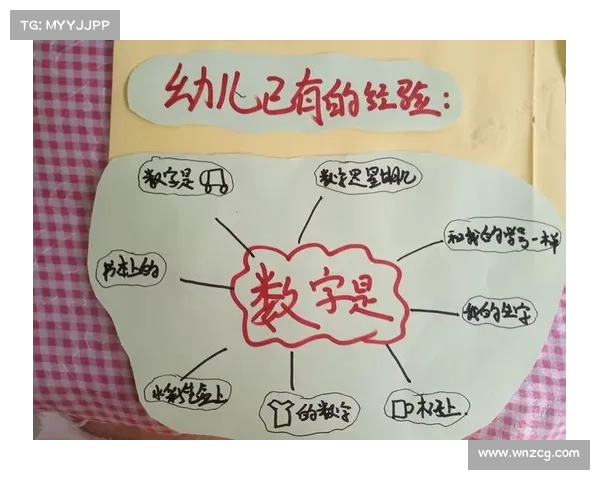 TG: MYYJJPP
幼儿已有的经验：
数字是
数字是星期几
和我的学号一样
书本上的
数字是
我的生字
水彩笔盒上
的数字
杯子上
www.wnzcg.com